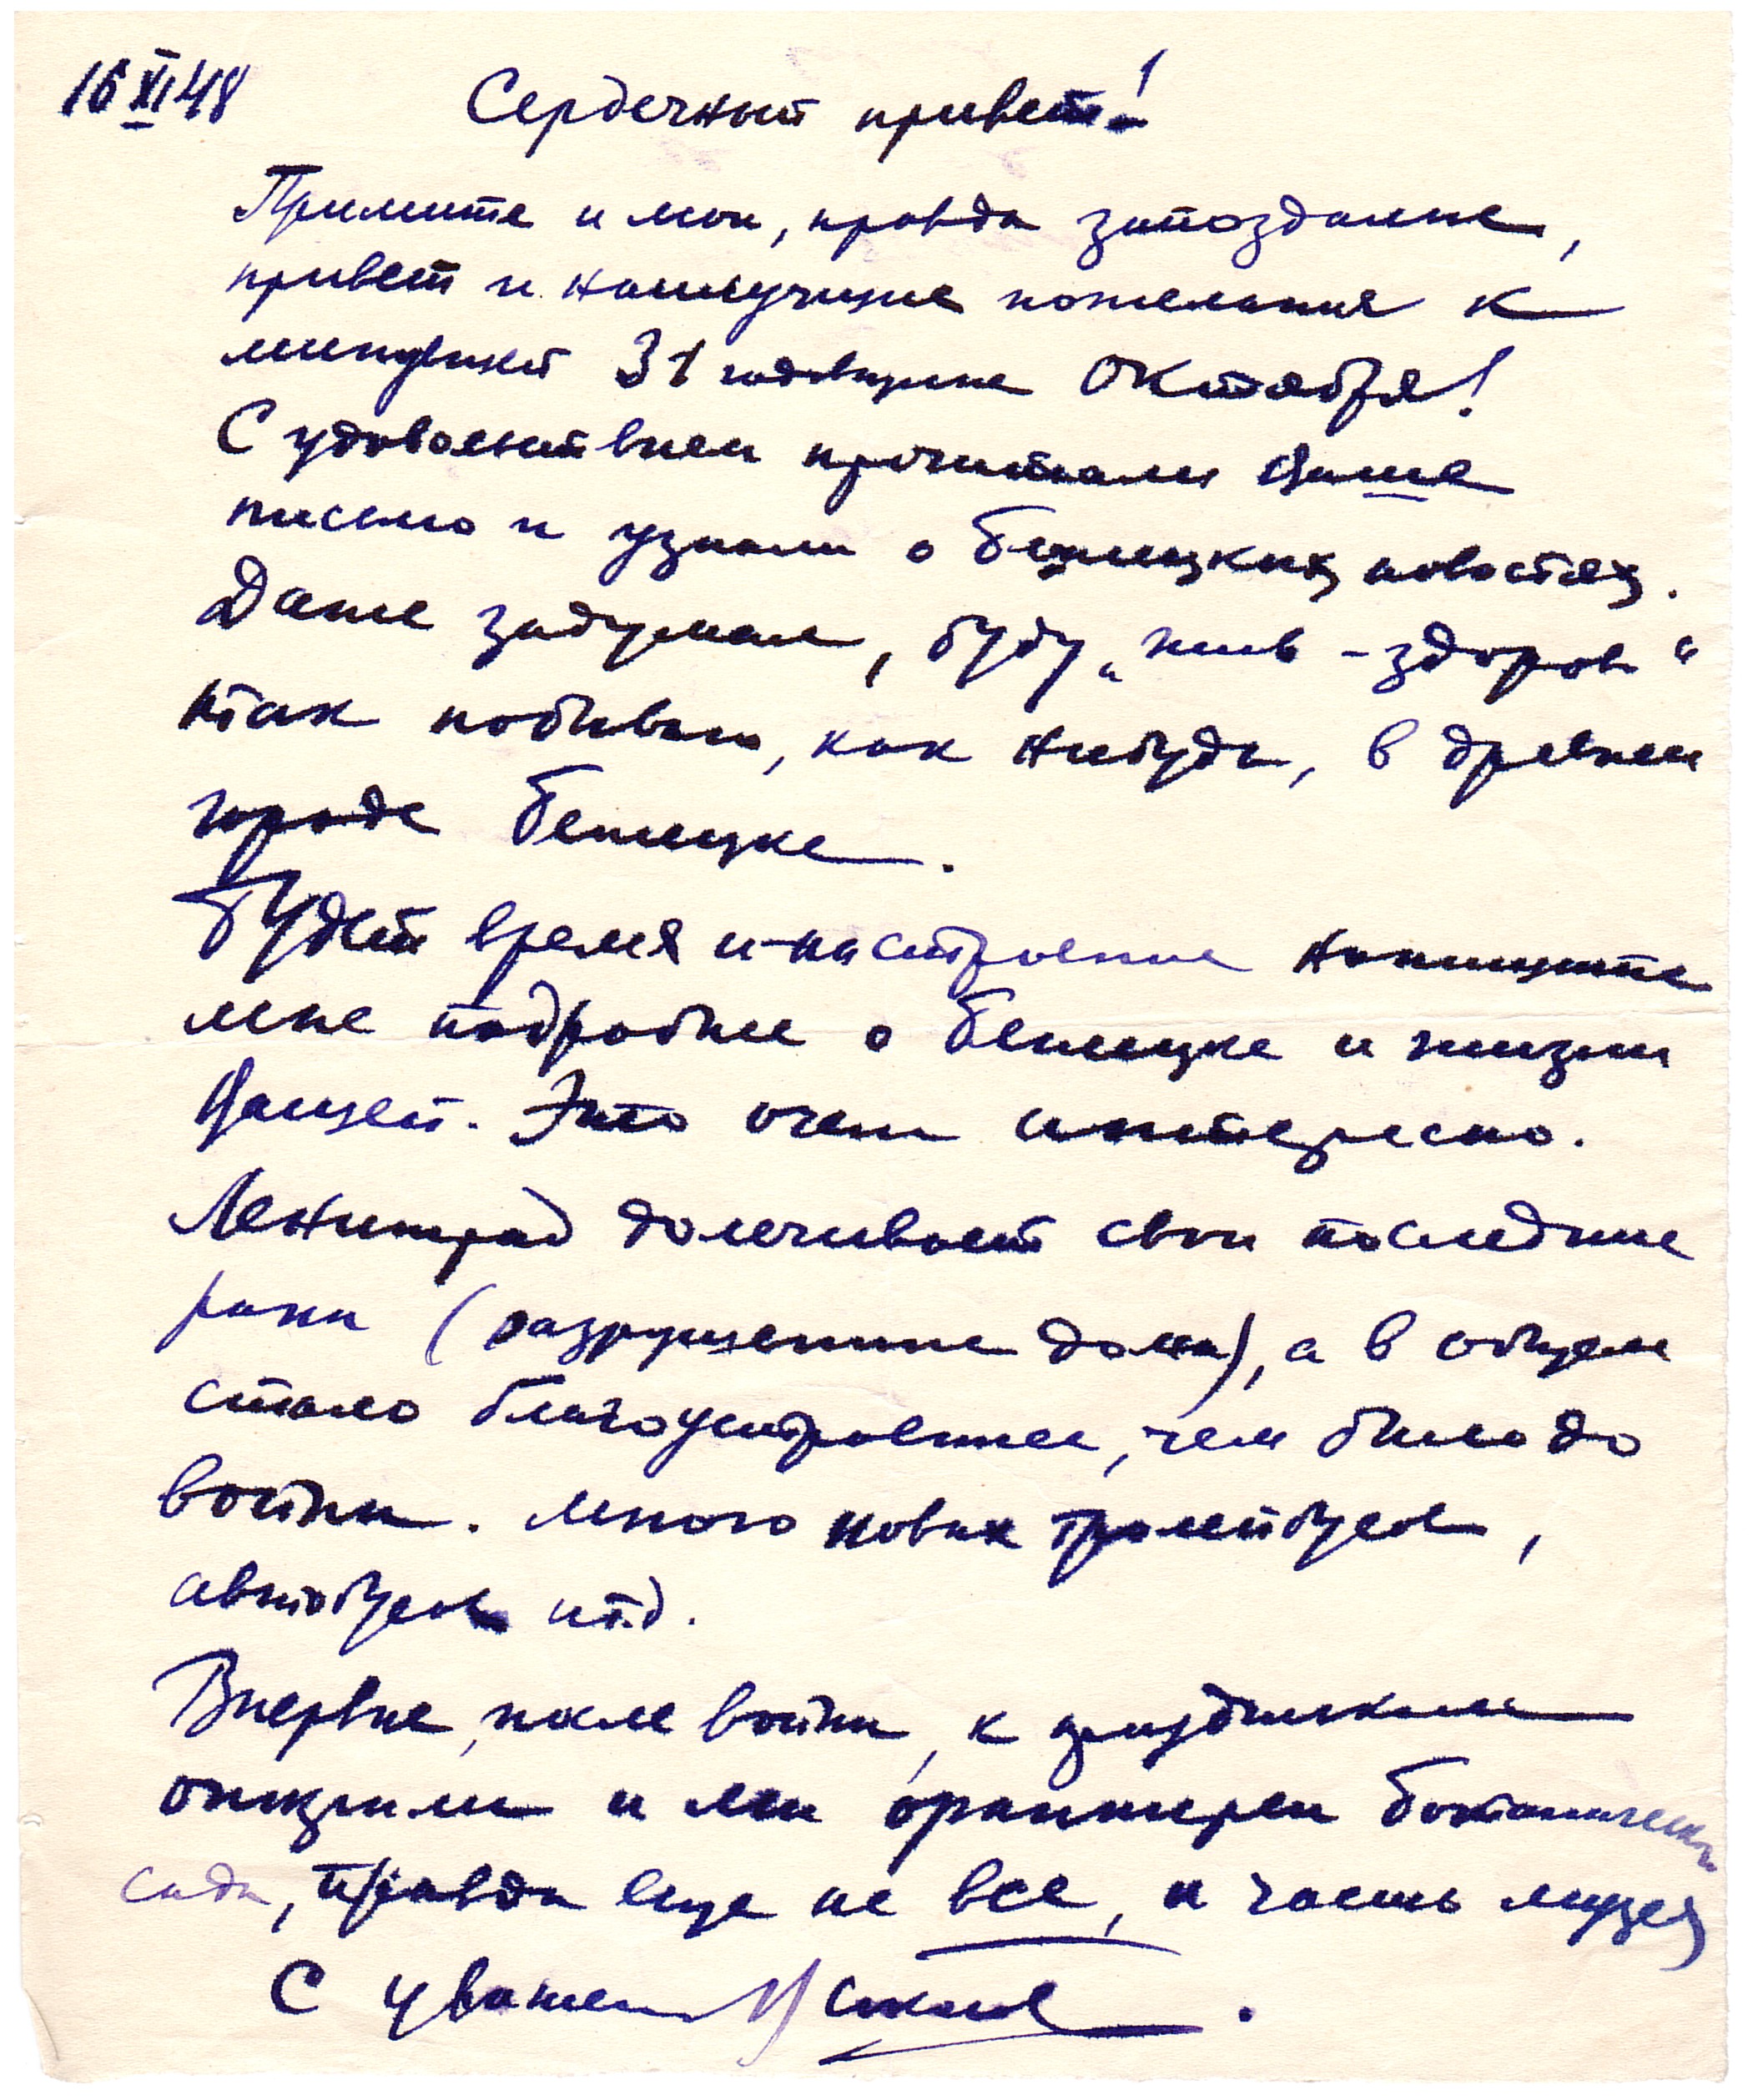 16 XI 48
Сердечный привет!
Примите и мои, правда запоздалые,
привет и наилучшие пожелания к
минувшей 31 годовщине Октября!
С удовольствием прочитали Ваше
письмо и узнали о бежецких новостях.
Даже задумал, буду „жив-здоров“
так побываю, как нибудь, в древнем
городе Бежецке.
Будет время и настроение напишите
мне подробнее о Бежецке и жизни
Вашей. Это очень интересно.
Ленинград долечивает свои последние
раны (разрушенные дома), а в общем
стало благоустроеннее, чем было до
войны. Много новых троллейбусов,
автобусов и т.д.
Впервые, после войны, к праздникам
открыли и мы оранжереи Ботанического
сада, правда еще не все, и часть музея
С уважением